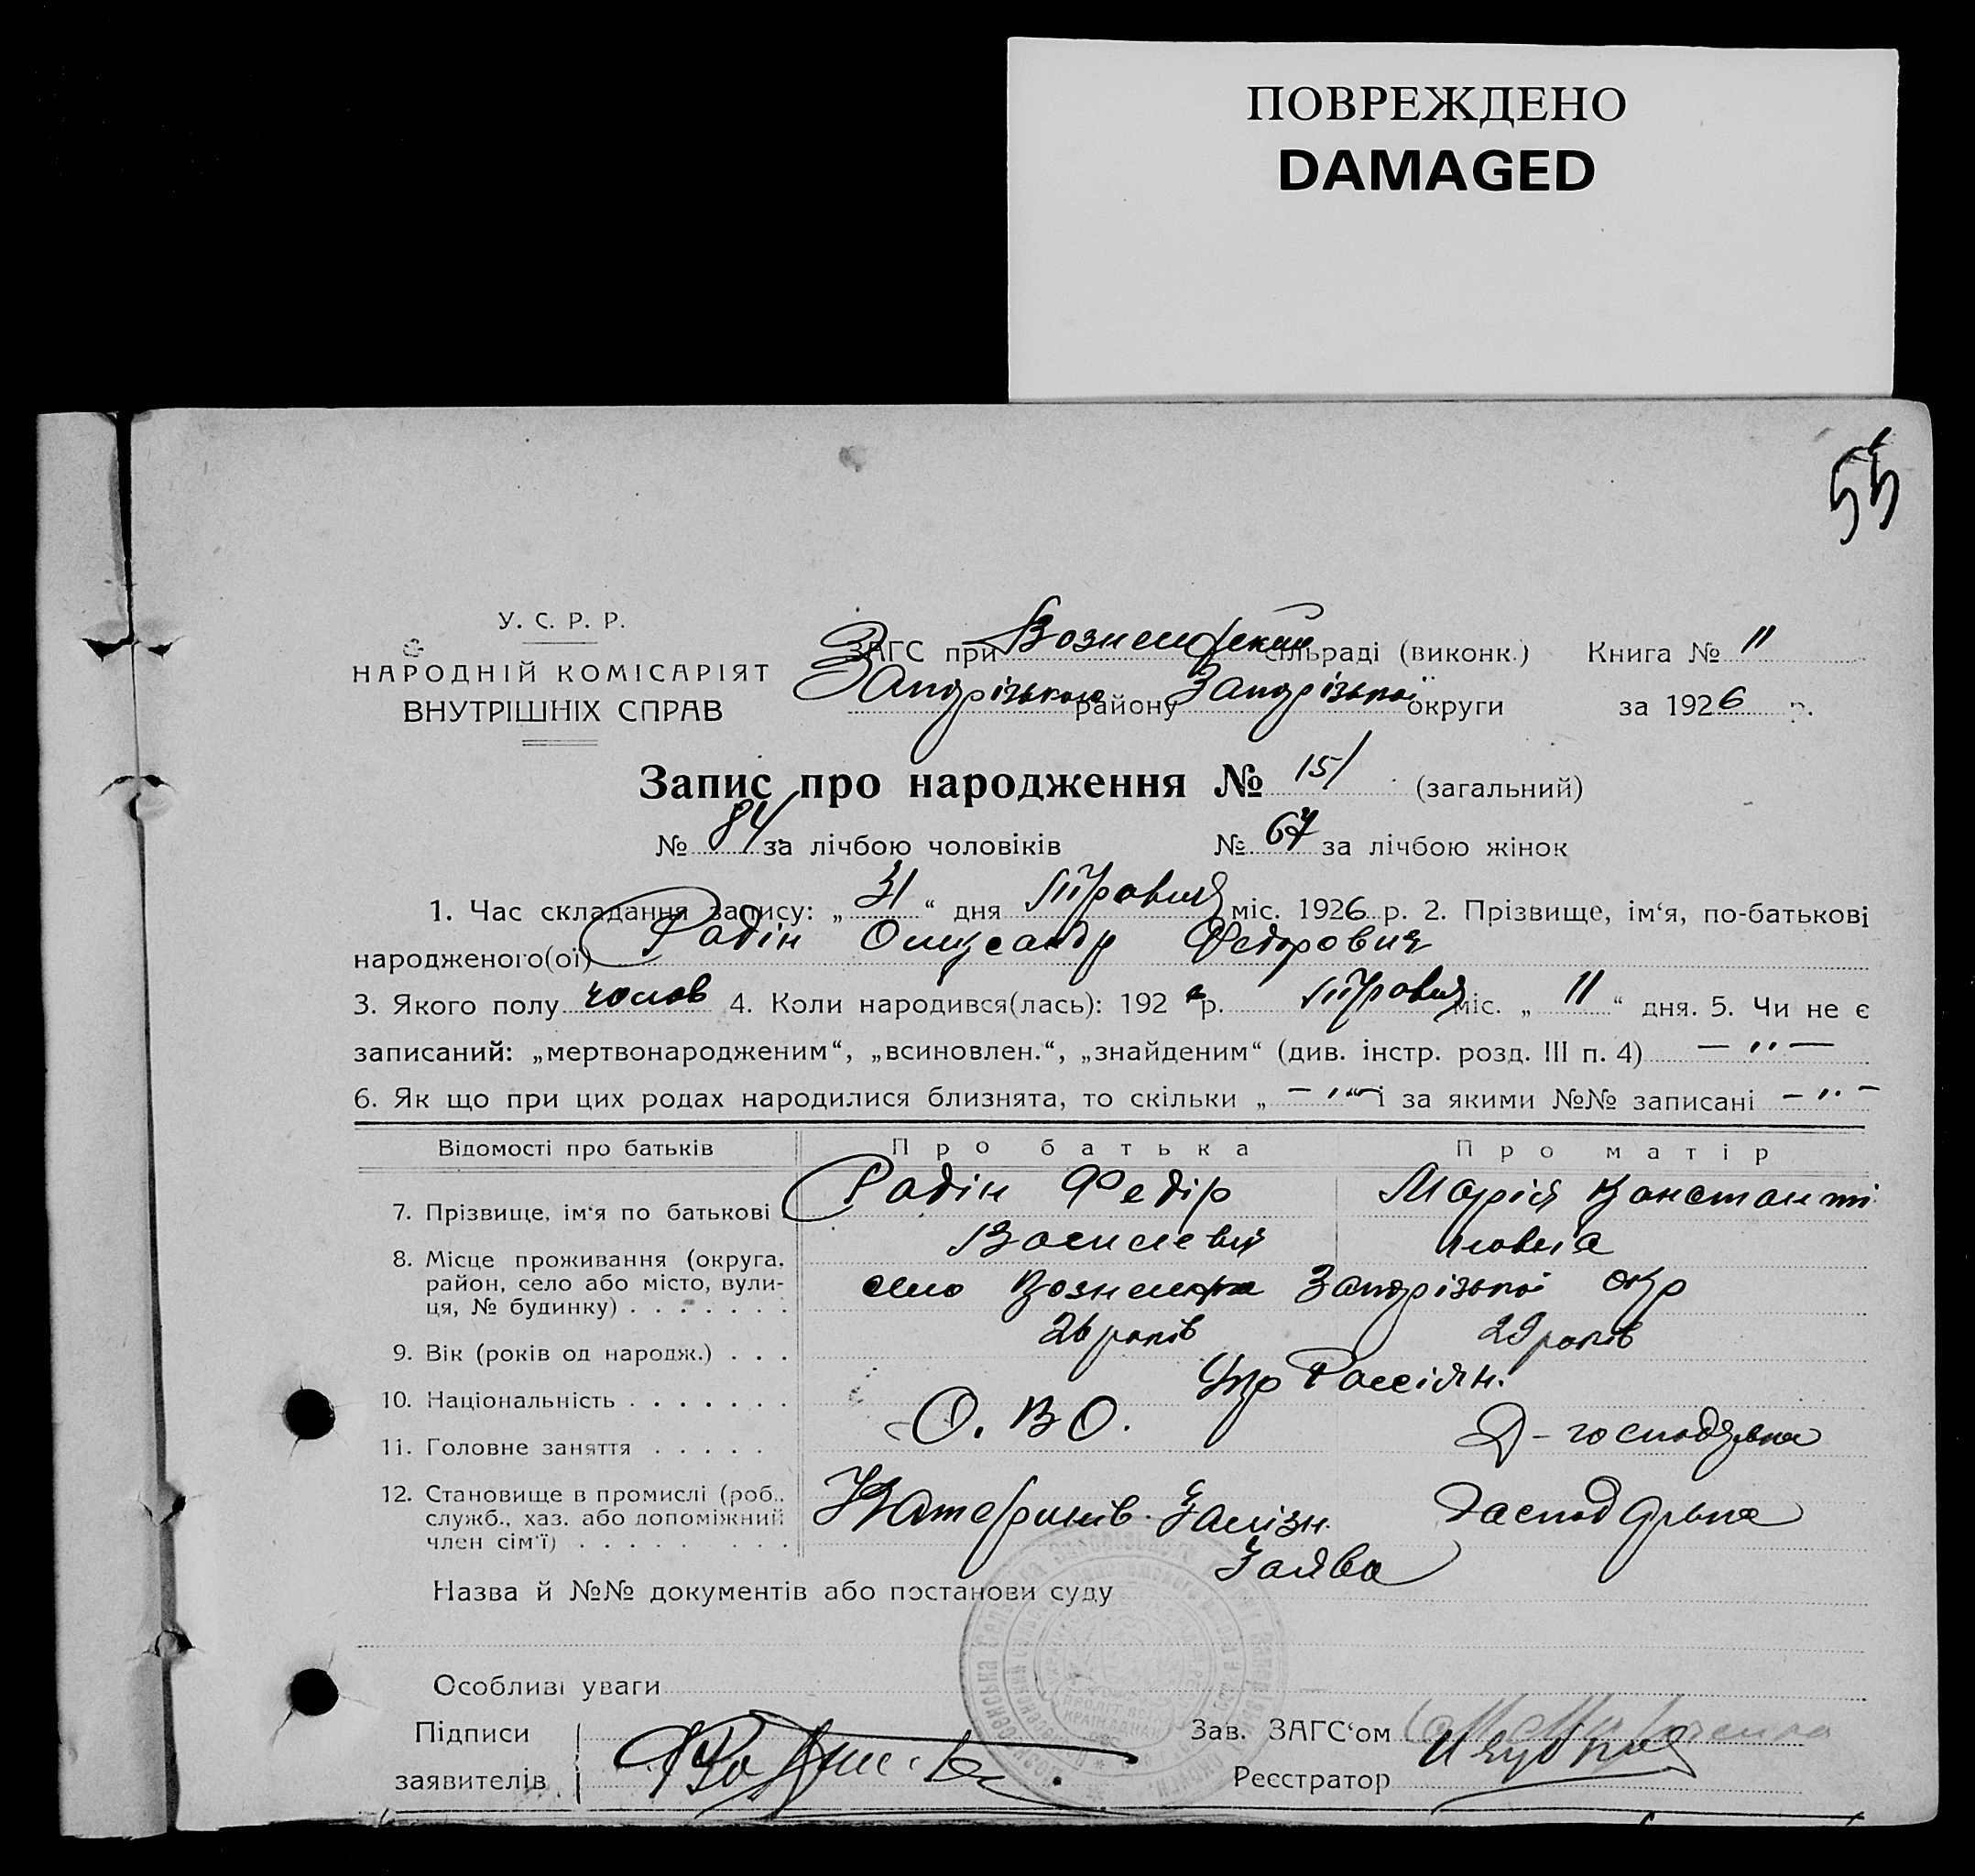 ПОВРЕЖДЕНО
DAMAGED
55
У. С. Р. Р.
НАРОДНІЙ КОМІСАРІЯТ
ВНУТРІШНІХ СПРАВ
ЗАГС при Вознесенський сільраді (виконк.) Книга № 11
Запорізького району Запорізької округи за 1926 р.
Запис про народження № 151 (загальний)
№ 84 за лічбою чоловіків № 67 за лічбою жінок
1. Час складання запису: „ 31 “ дня Травня міс. 1926 р. 2. Прізвище, ім‘я, по-батькові
народженого(ої) Радін Олександр Федорович
3. Якого полу чолов 4. Коли народився(лась): 192 6 р. Травня міс. „ 11 “ дня. 5. Чи не є
записаний: „мертвонародженим“, „всиновлен.“, „знайденим“ (див. інстр. розд. III п. 4) — ,, —
6. Як що при цих родах народилися близнята, то скільки „ — ,, “ і за якими №№ записані — ,, —
Відомості про батьків Про батька Про матір
7. Прізвище, ім‘я по батькові Радін Федір Марія Константі
Василевич новна
8. Місце проживання (округа,
район, село або місто, вули-
ця, № будинку) . . . . . . . село Вознесенка Запорізької окр
9. Вік (років од народж.) . . . 26 років 29 років
10. Національність . . . . . . . Укр Россіян.
11. Головне заняття . . . . . О. В О. Д-господарка
12. Становище в промислі (роб.,
служб., хаз. або допоміжний
член сім‘ї) . . . . . . . . . Катеринів. Залізн. Господарка
Заява
Назва й №№ документів або постанови суду
Особливі уваги
Підписи
заявителів
Зав. ЗАГС‘ом
Реєстратор